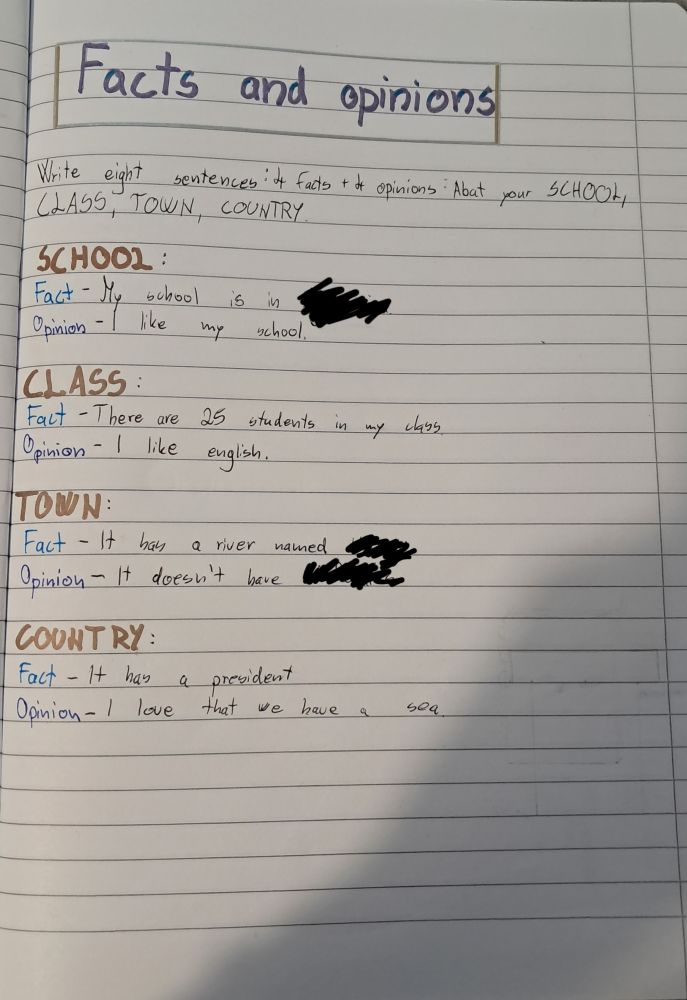 Facts and opinions
Write eight sentences: 4 Facts + 4 opinions: Abat your SCHOOL,
CLASS, TOWN, COUNTRY.
SCHOOL:
Fact - My school is in
Opinion - I like my school.
CLASS:
Fact - There are 25 students in my class.
Opinion - I like english.
TOWN:
Fact - It has a river named
Opinion - It doesn't have
COUNTRY:
Fact - It has a president
Opinion - I love that we have a sea.